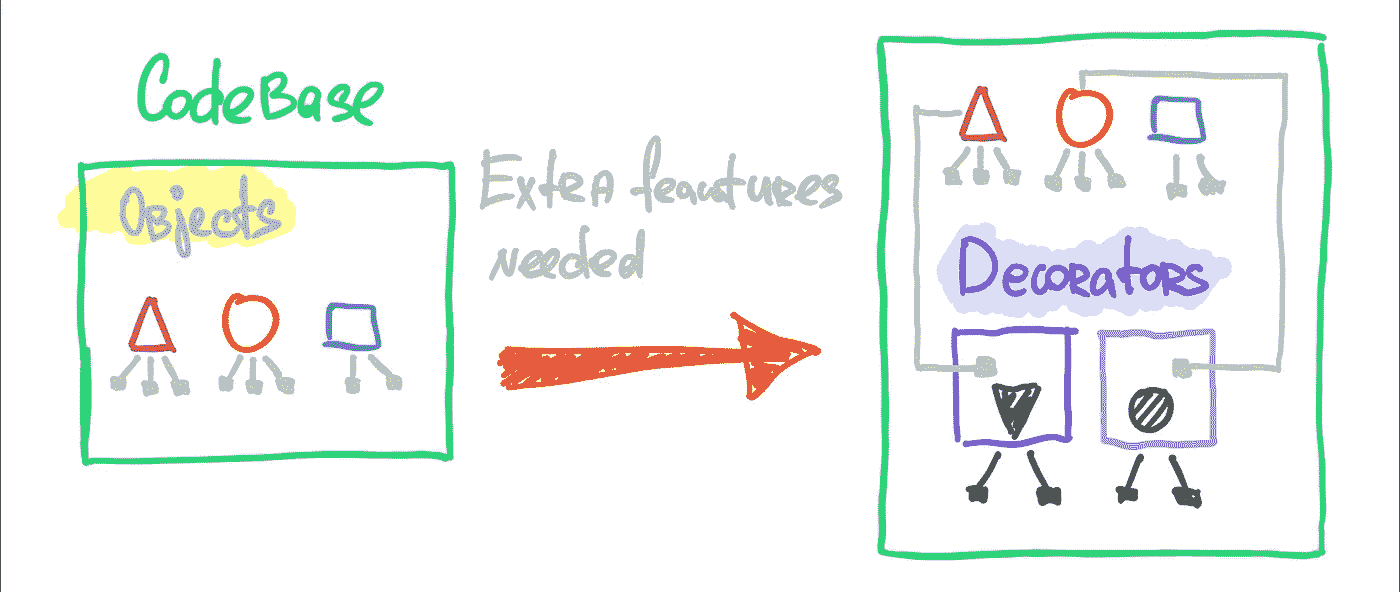 CodeBase
Objects
Extra feautures
needed
Decorators